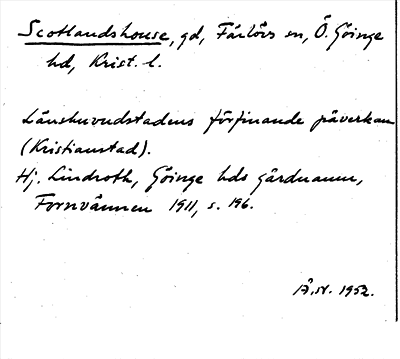 Scotlandshouse, gd, Färlövs sn, Ö. Göinge
hd, Krist. l.
Länshuvudstadens förfinande påverkan
(Kristianstad).
Hj. Lindroth, Göinge hds gårdnamn,
Fornvännen 1911, s. 196.
Å. st. 1952.